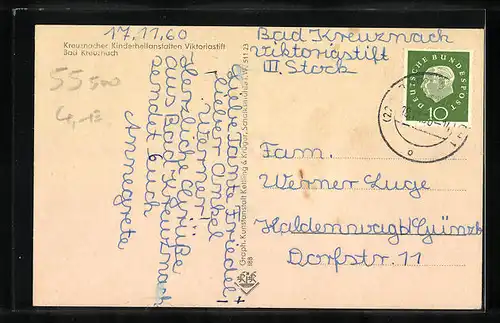 17.11.60
Kreuznacher Kinderheilanstalten Viktoriastift
Bad Kreuznach
55500
4,-
Liebe Tante Friedel +
lieber Onkel
Werner!
Herzliche Grüße
aus Bad Kreuznach
sendet Euch
Annegrete
Graph. Kunstanstalt Kettling & Krüger, Schalksmühle i. W. 51123
188
Bad Kreuznach
Viktoriastift
III. Stock
DEUTSCHE BUNDESPOST
10
Fam.
Werner Luge
Haldenwag b/Günzb
Dorfstr. 11